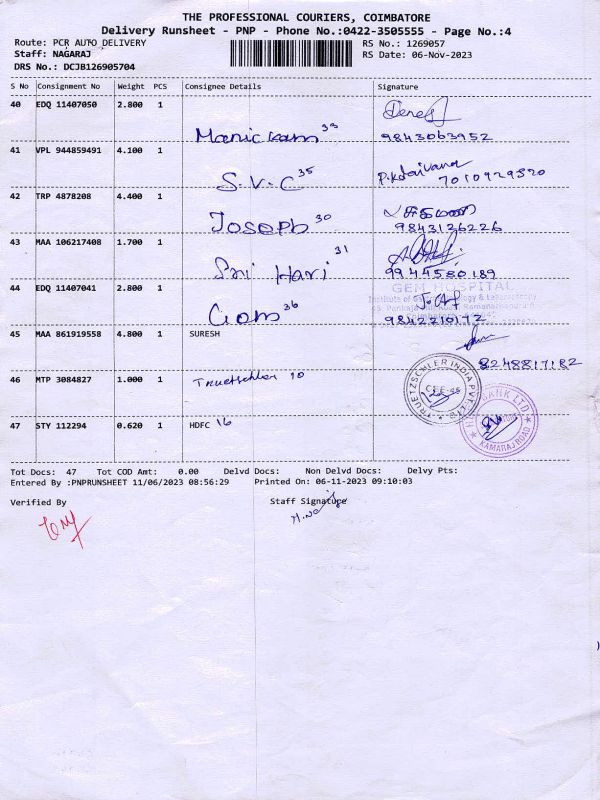 THE PROFESSIONAL COURIERS, COIMBATORE
Delivery Runsheet - PNP - Phone No.:0422-3505555 - Page No.:4
Route: PCR AUTO DELIVERY RS No.: 1269057
Staff: NAGARAJ RS Date: 06-Nov-2023
DRS No.: DCJB126905704
S No Consignment No Weight PCS Consignee Details Signature
40 EDQ 11407050 2.800 1
Manickam 33 9843063952
41 VPL 944859491 4.100 1
S.V.C 35 7010929520
42 TRP 4878208 4.400 1
Joseph 30 9843126226
43 MAA 106217408 1.700 1
Sri Hari 31 9944580189
44 EDQ 11407041 2.800 1 GEM HOSPITAL
Gem 36 9842210172
45 MAA 861919558 4.800 1 SURESH
8248817182
46 MTP 3084827 1.000 1 Truetschler 10 TRUETZSCHLER INDIA PVT. LTD.
47 STY 112294 0.620 1 HDFC 16 BANK LTD KAMARAJ ROAD
Tot Docs: 47 Tot COD Amt: 0.00 Delvd Docs: Non Delvd Docs: Delvy Pts:
Entered By :PNPRUNSHEET 11/06/2023 08:56:29 Printed On: 06-11-2023 09:10:03
Verified By Staff Signature